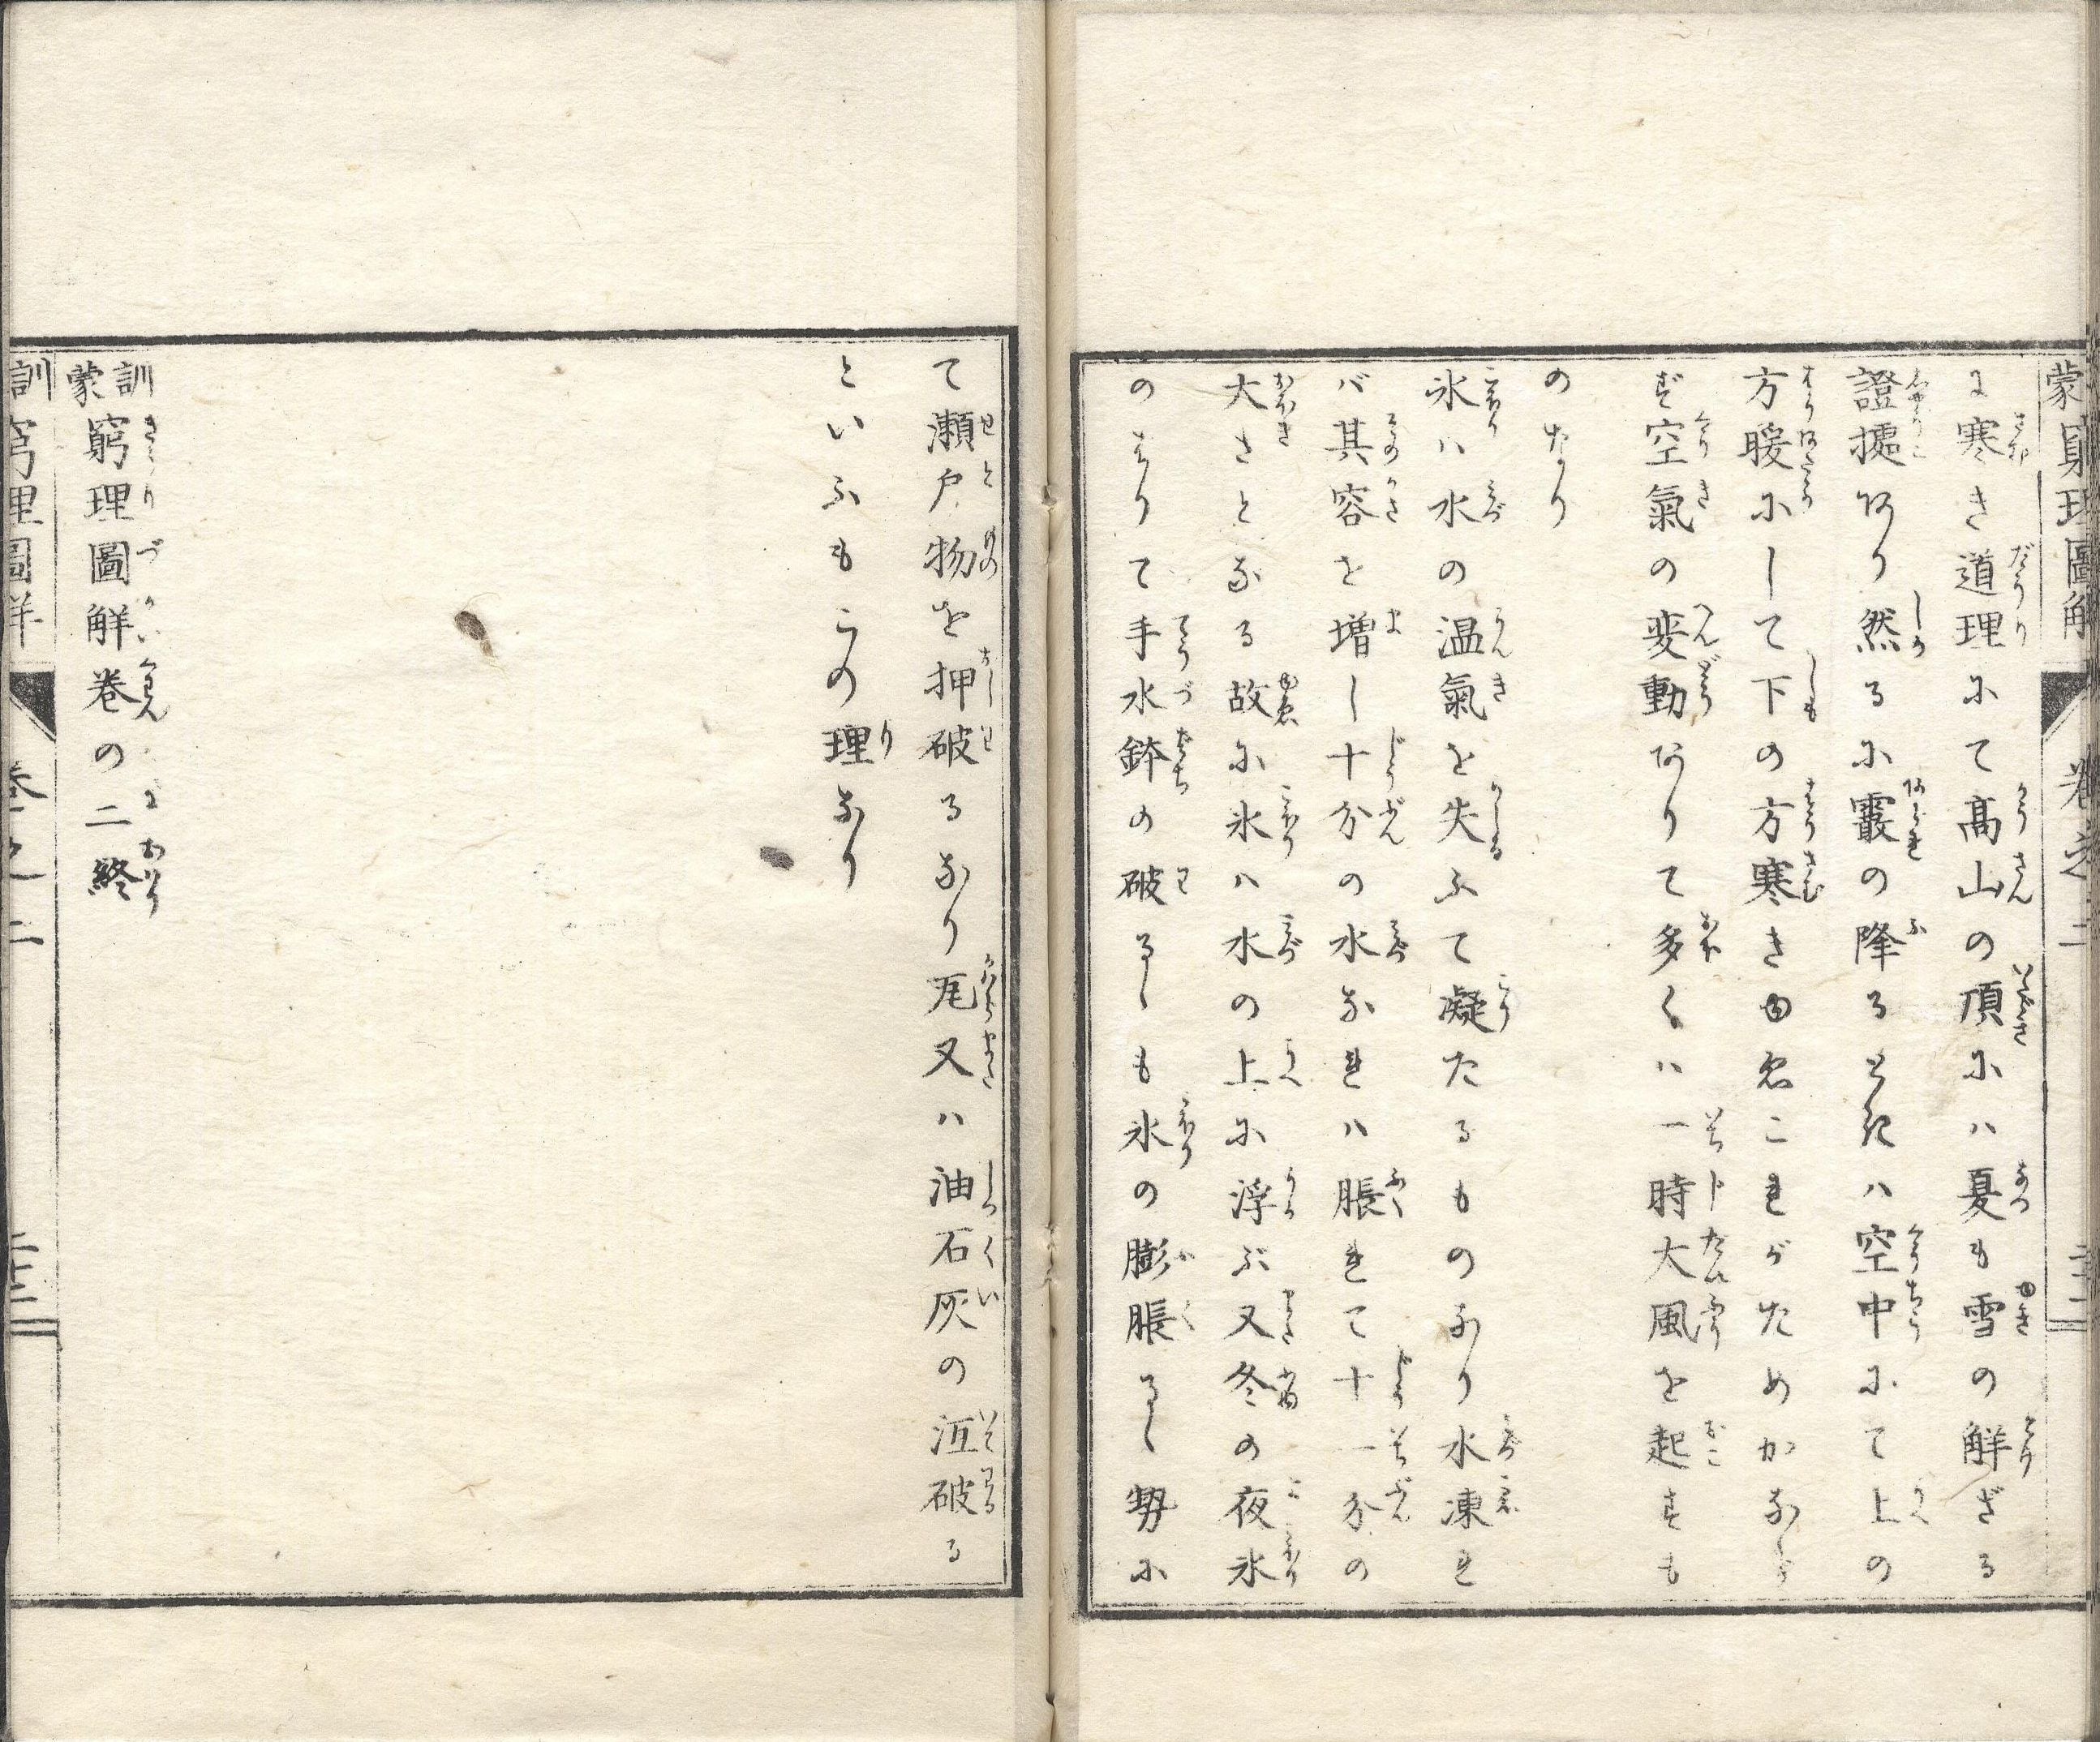 蒙窮理圖解 卷之二 二十二
に寒き道理にて髙山の頂にハ夏も雪の觧ざる
證據あり然るに霰の降るときハ空中にて上の
方暖にして下の方寒きゆゑこれがためかならず
空氣の変動ありて多くハ一時大風を起すも
のなり
氷ハ水の温氣を失ふて凝たるものなり水凍れ
バ其容を増し十分の水なれハ脹れて十一分の
大さとなる故に氷ハ水の上に浮ぶ又冬の夜氷
のはりて手水鉢の破るゝも氷の膨脹るゝ勢に
て瀬戸物を押破るなり瓦又ハ油石灰の沍破る
といふもこの理なり
訓蒙窮理圖觧卷の二終
訓窮理圖觧 卷之二 二十三